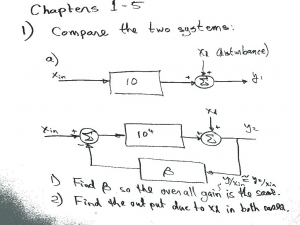 Chapters 1-5
1) Compare the two systems:
xd (disturbance)
a)
xin
10
+
+
Σ
y1
xd
xin
+
Σ
-
10⁴
+
+
Σ
y2
β
1) Find β so the overall gain is the same.
y1/xin ≅ y2/xin
2) Find the output due to xd in both cases.